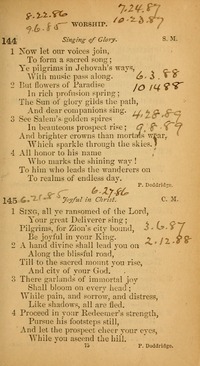 8.22.86
7.24.87
9.6.85
WORSHIP.
10-23.87
144
Singing of Glory.
S. M.
1 Now let our voices join,
To form a sacred song;
Ye pilgrims in Jehovah's ways,
With music pass along.
6.3.88
2 But flowers of Paradise
10 14 88
In rich profusion spring;
The Sun of glory gilds the path,
And dear companions sing.
4.28.89
3 See Salem's golden spires
In beauteous prospect rise;
9.8.89
And brighter crowns than mortals wear,
Which sparkle through the skies.
4 All honor to his name
Who marks the shining way!
To him who leads the wanderers on
To realms of endless day.
P. Doddridge.
6.27.86
145
Joyful in Christ.
C. M.
1 SING, all ye ransomed of the Lord,
Your great Deliverer sing;
Pilgrims, for Zion's city bound,
3.6.87
Be joyful in your King.
2 A hand divine shall lead you on
2.12.88
Along the blissful road,
Till to the sacred mount you rise,
And city of your God.
3 There garlands of immortal joy
Shall bloom on every head;
While pain, and sorrow, and distress,
Like shadows, all are fled.
4 Proceed in your Redeemer's strength,
Pursue his footsteps still,
And let the prospect cheer your eyes,
While you ascend the hill.
P. Doddridge.